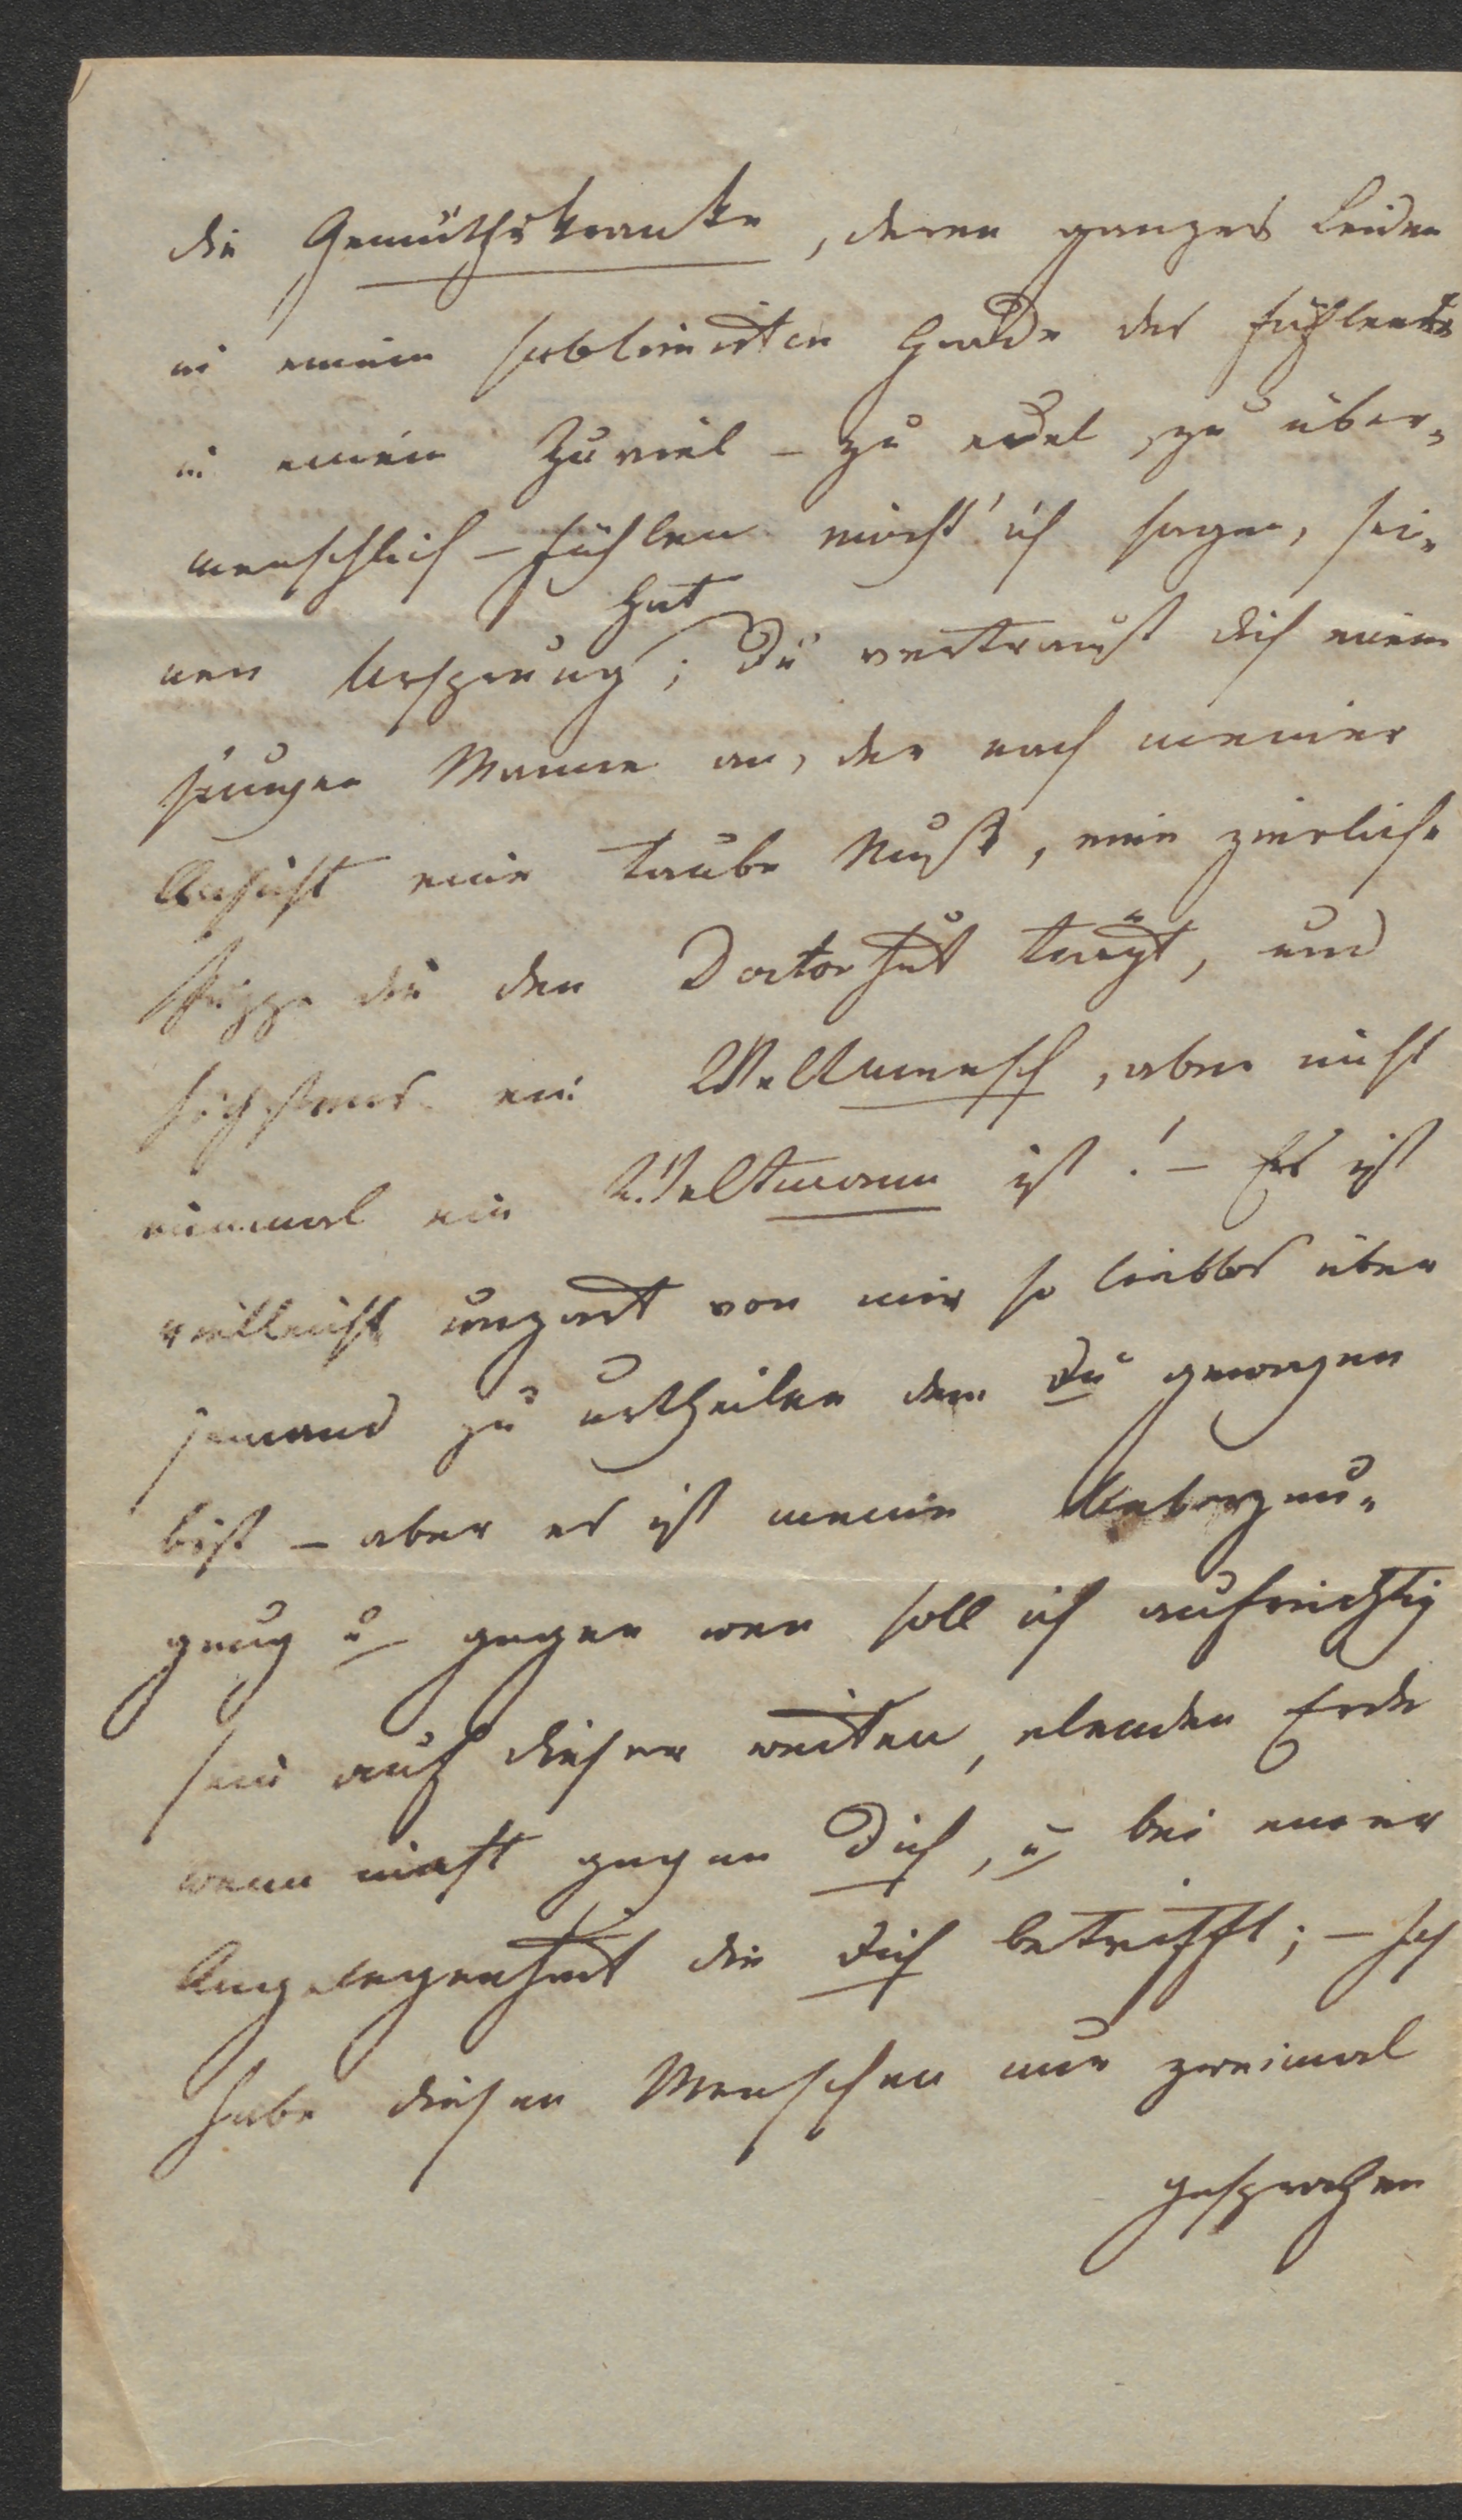 die Gemüthskranke, deren ganzes Leiden
in einem sublimirten Grade des Fühlens
in einem Zuviel – zu edel, zu über-
menschlich – fühlen möcht' ich sagen, sei-
nen Ursprung hat; Du vertraust dich einem
jungen Manne an, der nach meiner
Ansicht eine taube Nuß, eine zierliche
Puppe die den Doctorhut trägt, und
höchstens ein Weltmensch, aber nicht
einmal ein Weltmann ist! – Es ist
vielleicht unzart von mir so liebloß über
jemand zu urtheilen dem Du gewogen
bist – aber es ist meine Ueberzeu-
gung u gegen wen soll ich aufrichtig
sein auf dieser weiten, elenden Erde
wenn nicht gegen Dich, u bei einer
Angelegenheit die Dich betrifft; – Ich
habe diesen Menschen nur zweimal
gesprochen